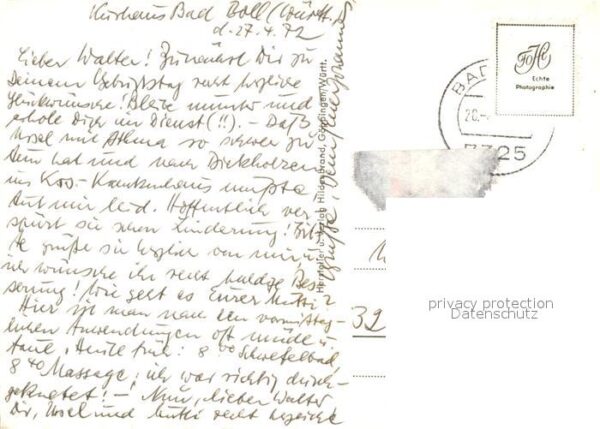 Kurhaus Bad Boll (Württ.)
d. 27.4.72
Lieber Walter! Zunächst Dir zu
Deinem Gebrtstag recht herzliche
Glückwünsche! Bleibe munter und
erhole Dich im Dienst (!!). – Daß
Ursel mit Athma so schwer zu
tun hat und nach Dickholzen
ins Krs.-Krankenhaus mußte
tut mir leid. Hoffentlich ver-
spürt sie schon Linderung! Bit-
te grüße sie herzlich von mir u.
ich wünsche ihr recht baldge Bes-
serung! Wie geht es eurer Mutti?
Hier ist man nach den vormittag-
lichen Anwendungen oft müde u.
faul. Heute früh: 8 00 Schwefelbad,
8 40 Massage; ich war richtig durch-
geknetet! – Nun, lieber Walter
Dir, Ursel und Mutti recht herzliche
Grüße
Hersteller u. Verlag Hildenbrand, Göppingen/Württ.
Echte
Photographie
BAD
20.
7325
32
privacy protection
Datenschutz